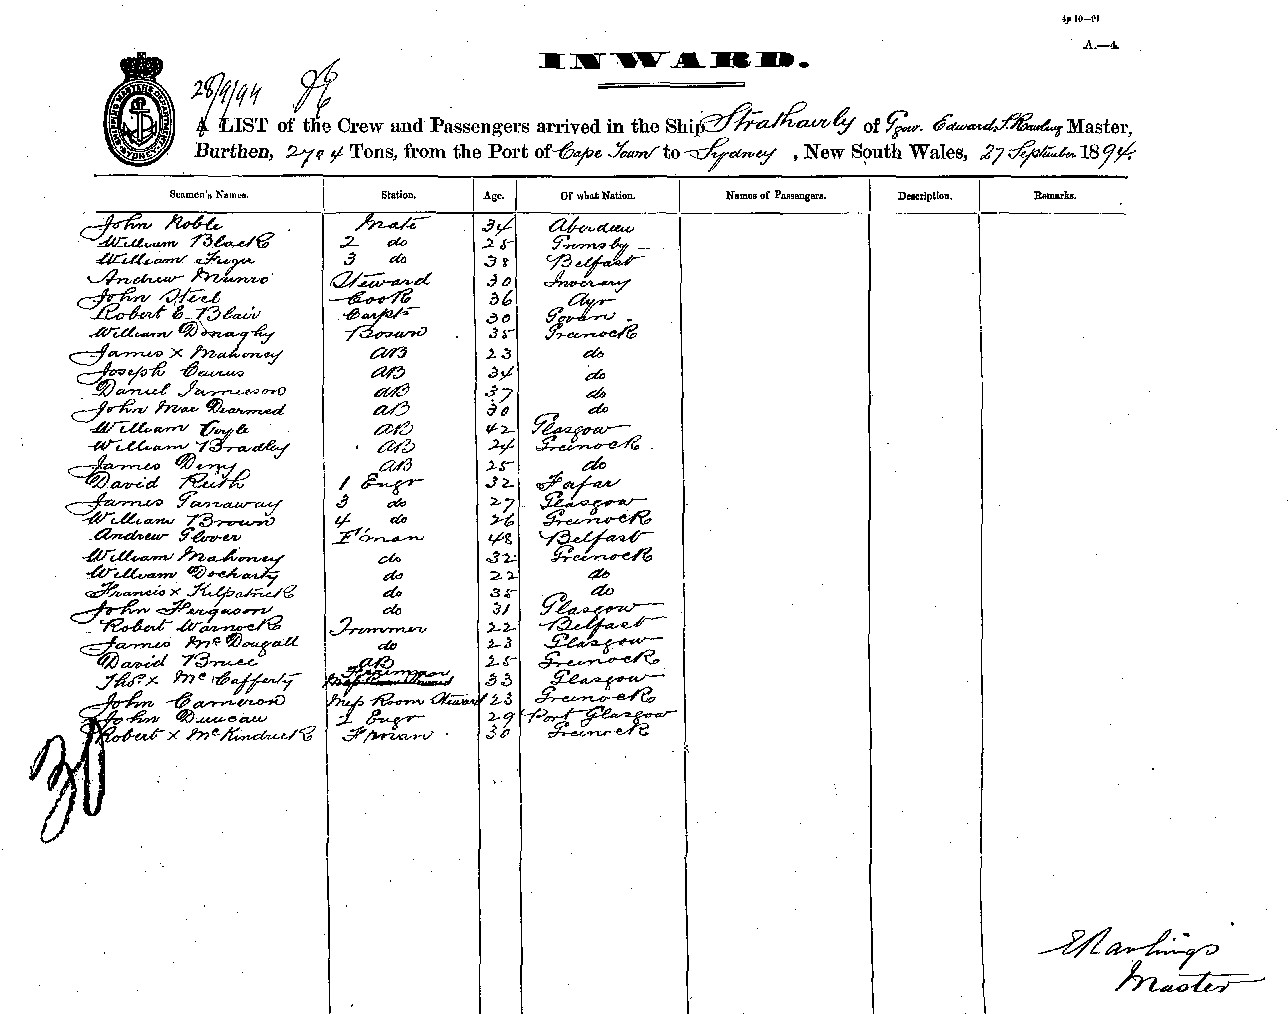 A.—4.
INWARD.
28/9/94
A LIST of the Crew and Passengers arrived in the Ship Strathairly of Gow. Edward S. Rawling Master,
Burthen, 2704 Tons, from the Port of Cape Town to Sydney, New South Wales, 27 September 1894.
Seamen's Names. Station. Age. Of what Nation. Names of Passengers. Description. Remarks.
John Noble Mate 34 Aberdeen
William Black 2 do 25 Grimsby
William 3 do 38 Belfast
Andrew Munro Steward 30 Inverary
John Steel Cook 36 Ayr
Robert C. Blair Carptr 30 Govan
William Donaghy Bosun 35 Greenock
James x Mahoney AB 23 do
Joseph AB 34 do
Daniel Jamieson AB 37 do
John Mac Dearmed AB 30 do
William Coyle AB 42 Glasgow
William Bradley AB 24 Greenock
James Deny AB 25 do
David Keith 1 Engr 32 Forfar
James Ganaway 3 do 27 Glasgow
William Brown 4 do 26 Greenock
Andrew Glover F'man 48 Belfast
William Mahoney do 32 Greenock
William Docharty do 22 do
Francis x Kilpatrick do 35 do
John Ferguson do 31 Glasgow
Robert Warnock Trimmer 22 Belfast
James McDougall do 23 Glasgow
David Bruce AB 25 Greenock
Thos x McCafferty Fireman 33 Glasgow
John Cameron Mess Room Steward 23 Greenock
John Duncan 2 Engr 29 Port Glasgow
Robert x McKindrick F'man 30 Greenock
30
E Rawlings
Master